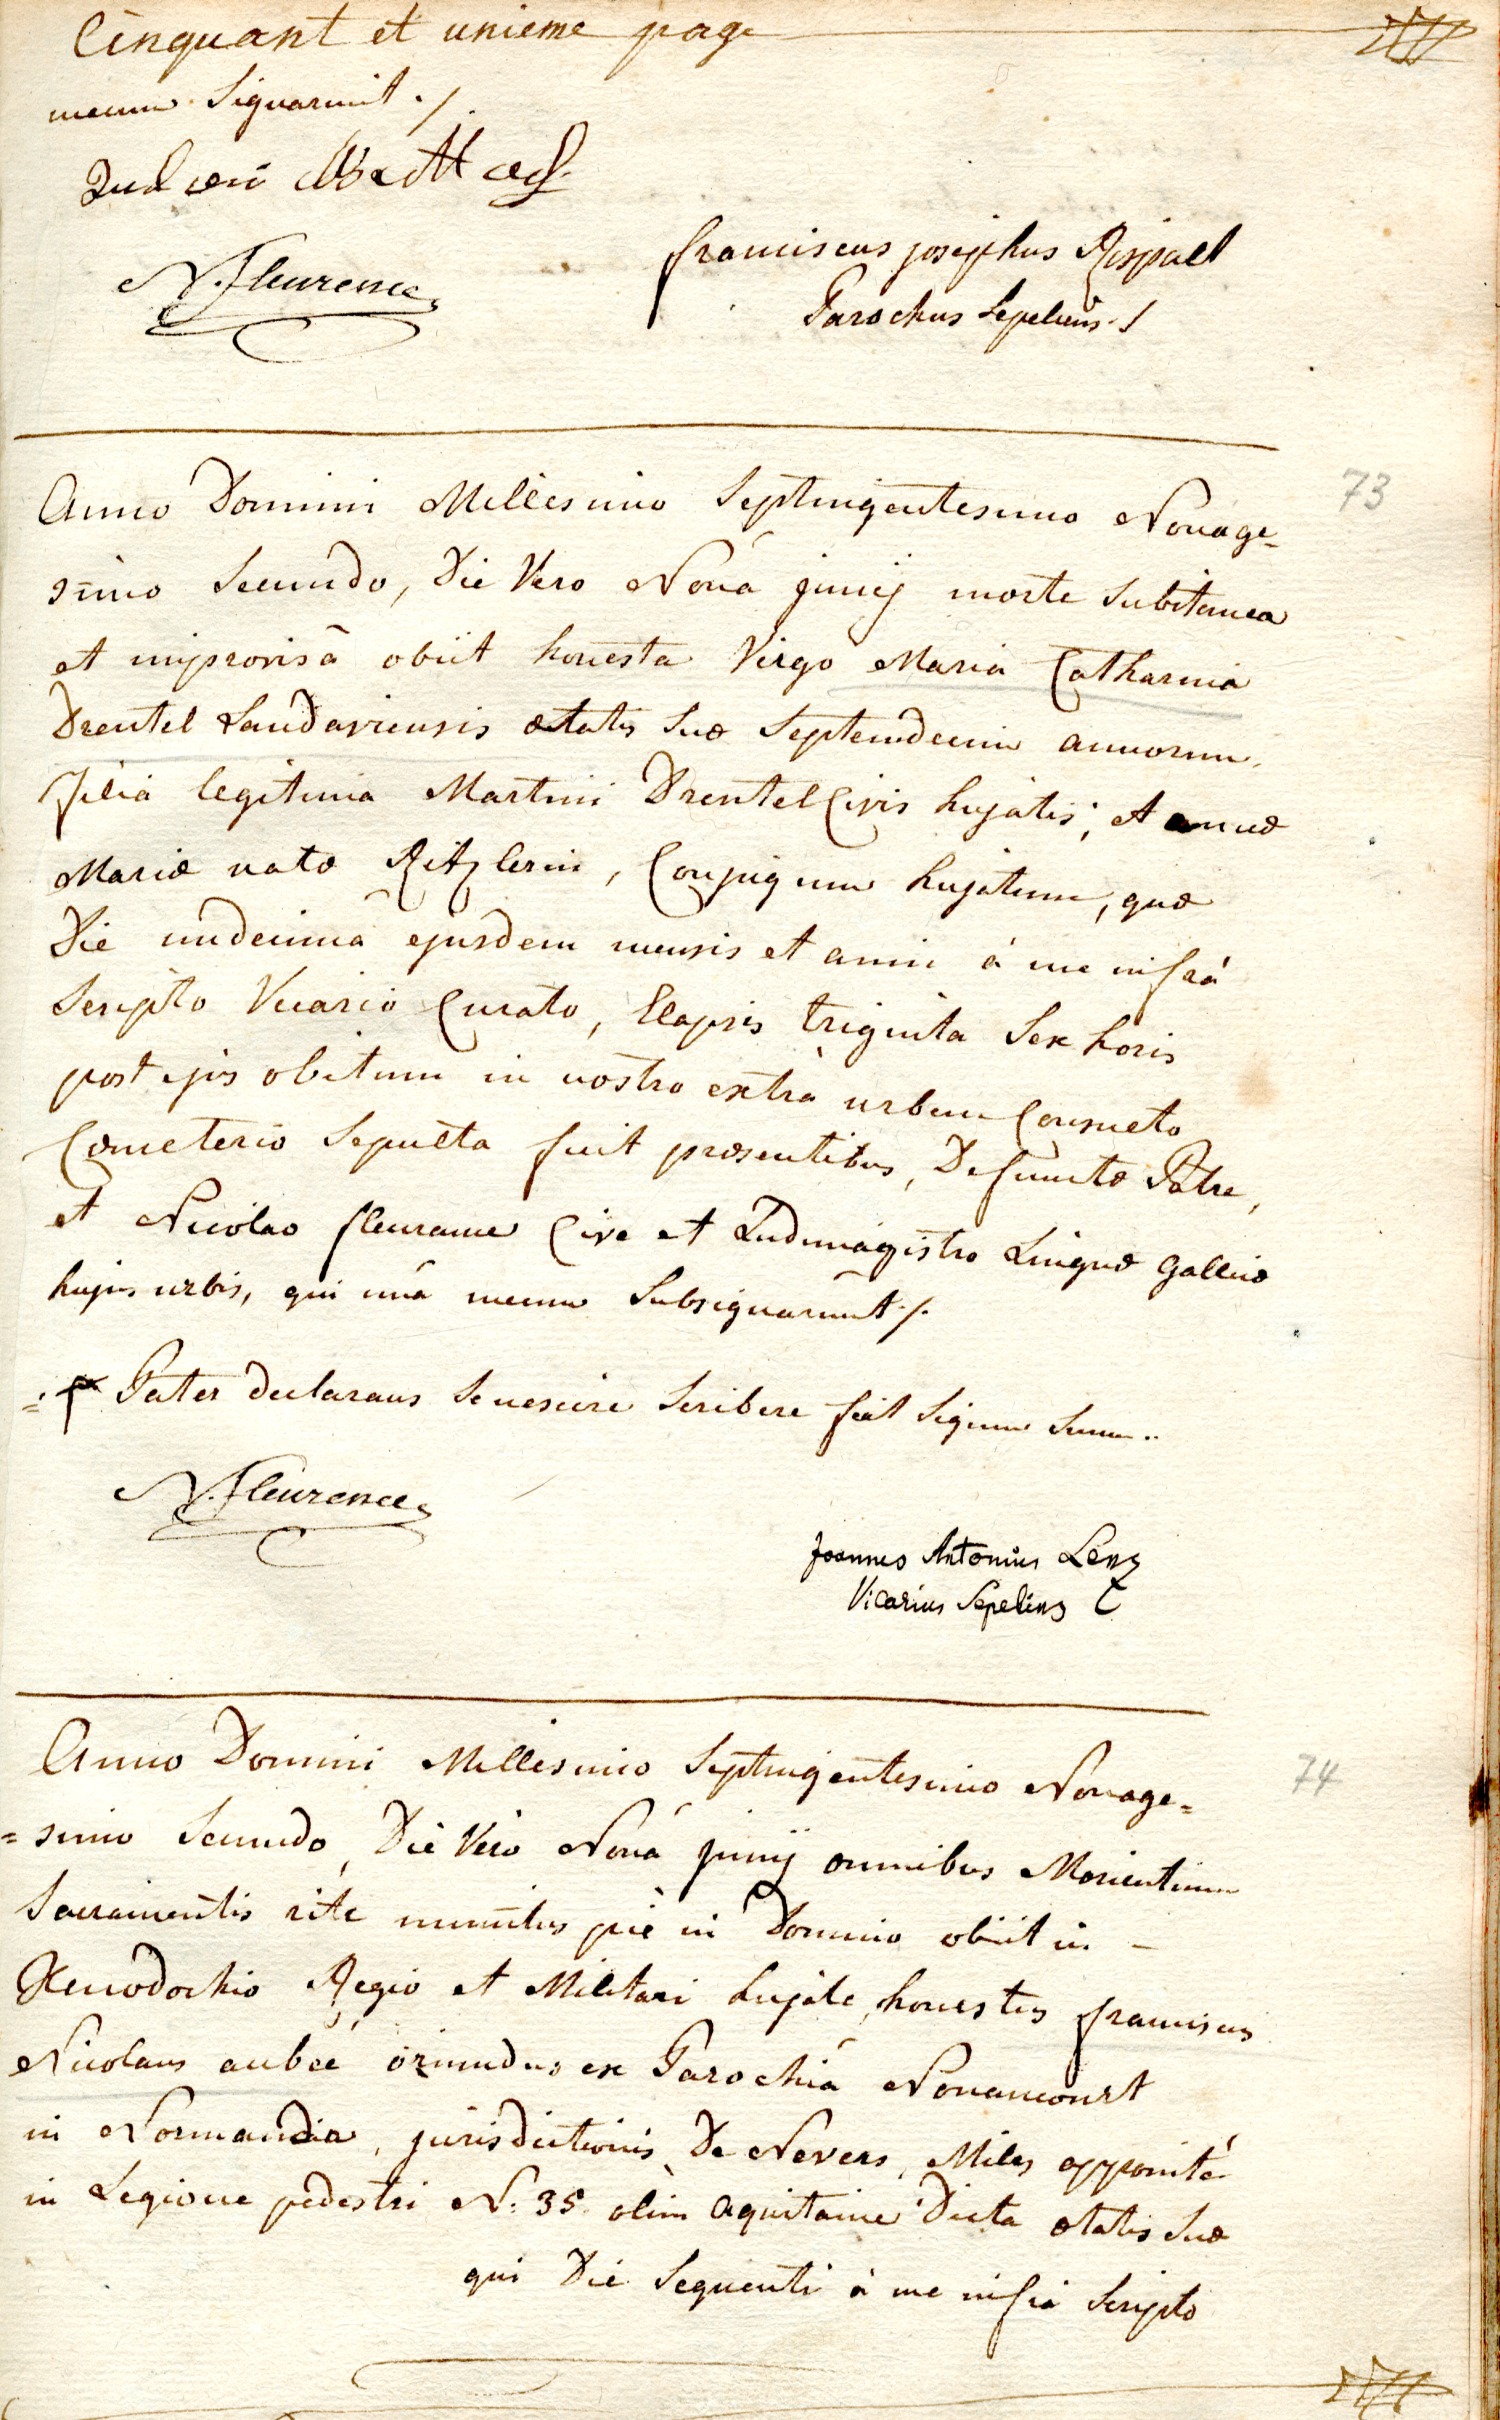 Cinquant et unieme page
mecum Signarunt ./.
N. fleurence
franciscus josephus Rispael
Parochus Sepeliens ./
73
Anno Domini Millesimo Septingentesimo Nonage-
simo Secundo, Die Vero Nonâ junij morte Subitanea
et improvisâ obiit honesta Virgo Maria Catharina
Drentel Landaviensis ætatis Suæ Septemdecim annorum,
filia legitima Martini Drentel Civis hujatis, et annæ
Mariæ natæ Ritzlerin, Conjugum hujatum, quæ
Die undecima ejusdem mensis et anni à me infrà
Scripto Vicario Curato, Elapsis triginta Sex horis
post ejus obitum in nostro extrà urbem Consueto
Cœmeterio Sepulta fuit præsentibus, Defunctæ Patre,
et Nicolao fleurance Cive et Ludimagistro Linguæ Gallicæ
hujus urbis, qui unâ mecum Subsignarunt ./.
Pater declarans Se nescire Scribere fecit Signum Suum ..
N. fleurence
Joannes Antonius Lenz
Vicarius Sepeliens
74
Anno Domini Millesimo Septingentesimo Nonage=
=simo Secundo, Die Vero Nonâ junij omnibus Morientium
Sacramentis ritè munitus piè in Domino obiit in -
Xenodochio Regio et Militari hujate, honestus franciscus
Nicolaus aubeé oriundus ex Parochiâ Nonancourt
in Normandia, jurisdictionis De Nevers, Miles
in Legione pedestri N: 35 olim aquitaine Dicta ætatis Suæ
qui Die Sequenti à me infrà Scripto